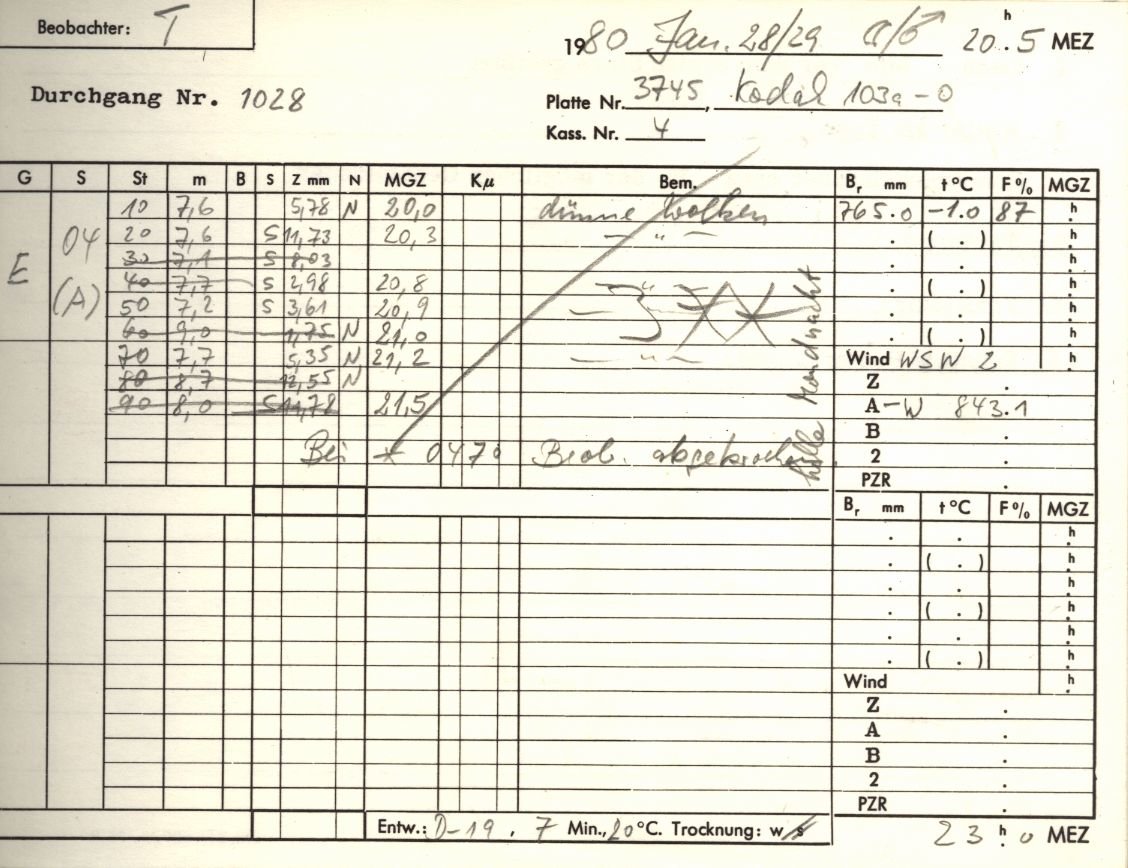 Beobachter: T
1980 Jan. 28/29 ☾/♂ 20h.5 MEZ
Durchgang Nr. 1028
Platte Nr. 3745, Kodak 103a-O
Kass. Nr. 4
G S St m B S Z mm N MGZ Kμ Bem. Br mm t°C F% MGZ
10 7,6 5,78 N 20,0 dünne Wolken 765.0 -1.0 87 h
04 20 7,6 S 11,73 20,3 — " — . ( . ) h
30 7,1 S 8,03 . . h
E 40 7,7 S 2,98 20,8 — " — . ( . ) h
(A) 50 7,2 S 3,61 20,9 . . h
60 9,0 1,75 N 21,0 . ( . ) h
70 7,7 5,35 N 21,2 — " — Wind WSW 2 h
80 8,7 12,55 N Z .
90 8,0 S 11,78 21,5 A -W 843.1
B .
Bei * 0470 Beob. abgebrochen 2 .
helle Mondnacht
PZR .
Br mm t°C F% MGZ
. . h
. ( . ) h
. . h
. ( . ) h
. . h
. ( . ) h
Wind h
Z .
A .
B .
2 .
PZR .
Entw.: D-19, 7 Min., 20°C. Trocknung: w/s
23h.0 MEZ